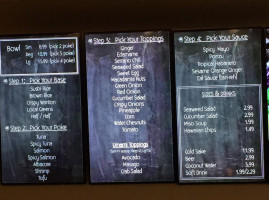 Bowl
Sm 8.99 (pick 2 poke)
Reg 12.99 (pick 3 poke)
Lg 15.99 (pick 4 poke)
Step 1: Pick Your Base
Sushi Rice
Brown Rice
Crispy Wonton
Local Greens
Half / Half
Step 2: Pick Your Poke
Tuna
Spicy Tuna
Salmon
Spicy Salmon
Albacore
Shrimp
Tofu
Step 3: Pick Your Toppings
Ginger
Edamame
Serrano Chili
Seaweed Salad
Sweet Egg
Macadamia Nuts
Green Onion
Red Onion
Cucumber Salad
Crispy Onions
Pineapple
Corn
Water Chestnuts
Tomato
Umami Toppings
Avocado
Masago
Crab Salad
Step 4: Pick Your Sauce
Spicy Mayo
Ponzu
Tropical Habanero
Sesame Orange Ginger
SIDES & DRINKS
Seaweed Salad 2.99
Cucumber Salad 2.99
Miso Soup 1.99
Hawaiian Chips 1.49
Beer
Coconut Water
Soft Drink 1.99/2.29